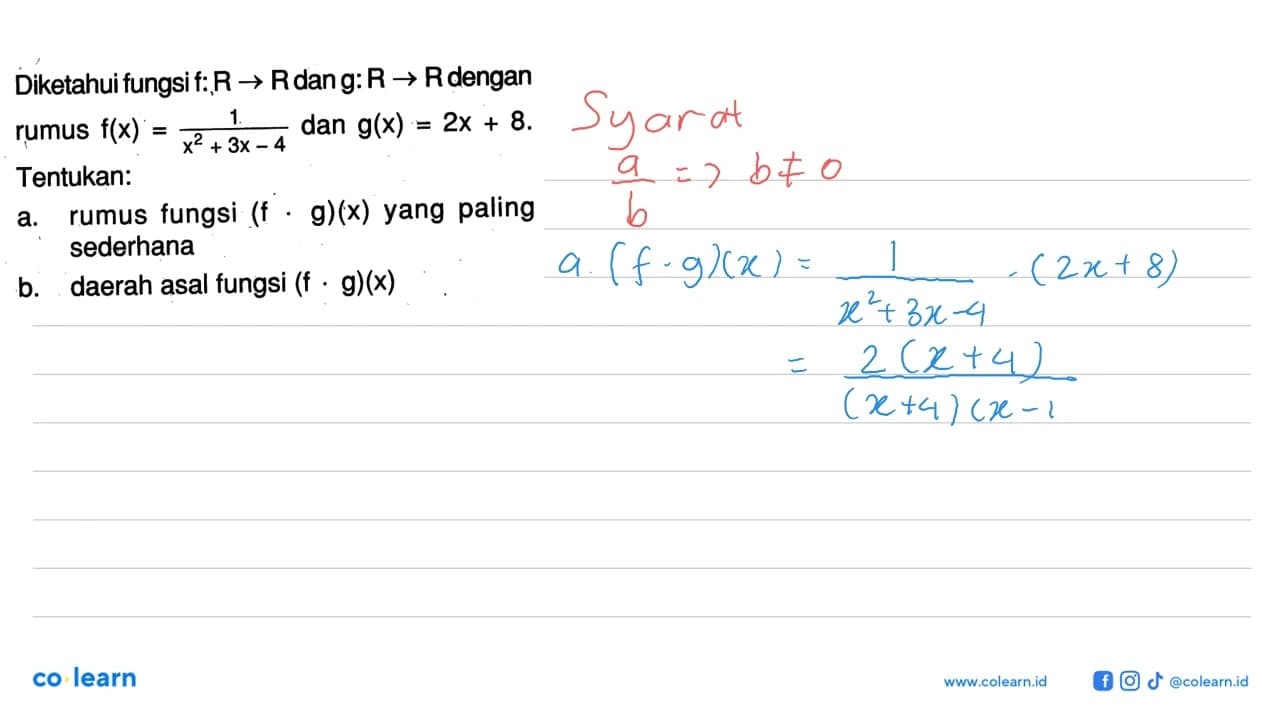 Diketahui fungsi f: R → R dan g: R → R dengan
rumus f(x) = 1/(x² + 3x – 4) dan g(x) = 2x + 8.
Tentukan:
a. rumus fungsi (f · g)(x) yang paling
sederhana
b. daerah asal fungsi (f · g)(x)
Syarat
a/b => b ≠ 0
a. (f·g)(x) = 1/(x²+3x-4) · (2x+8)
= 2(x+4)/(x+4)(x-1
co learn
www.colearn.id
@colearn.id